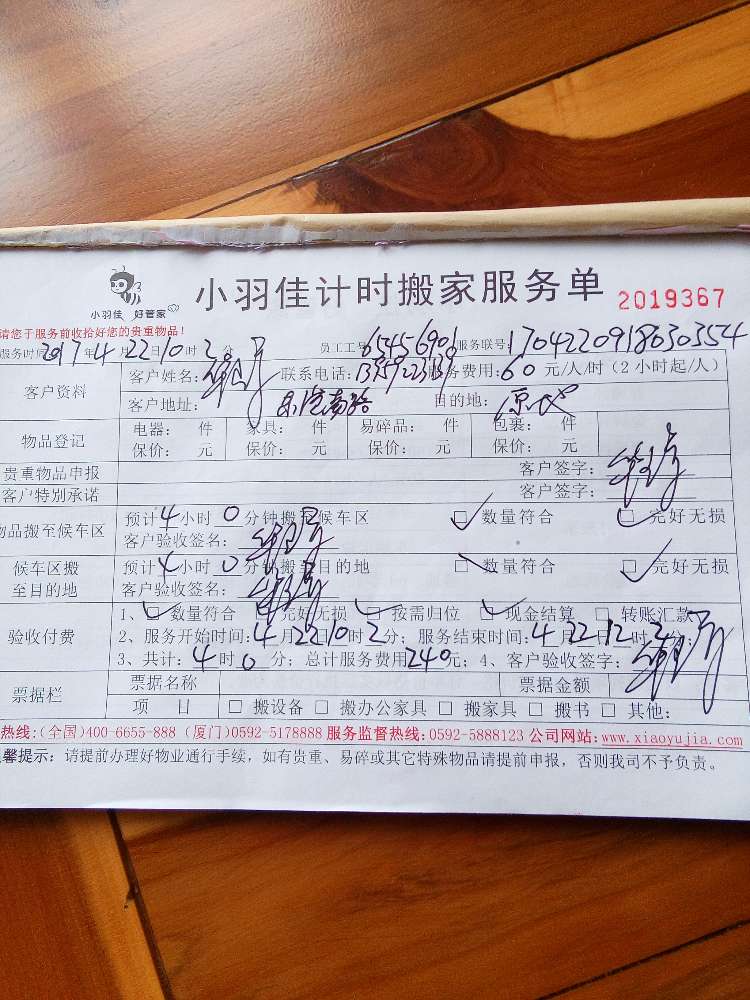 小羽佳 好管家
小羽佳计时搬家服务单 2019367
请您于服务前收拾好您的贵重物品!
服务时间2017年4月22日10时2分 员工工号 65456901 服务联号:1704220918630354
客户资料 客户姓名: 联系电话: 服务费用:60元/人/时(2小时起/人)
客户地址: 南路 目的地:原地
物品登记 电器: 件 家具: 件 易碎品: 件 包裹: 件
保价: 元 保价: 元 保价: 元 保价: 元
贵重物品申报 客户签字:
客户特别承诺 客户签字:
物品搬至候车区 预计4小时0分钟搬至候车区 ☑数量符合 ☑完好无损
客户验收签名:
候车区搬至目的地 预计4小时0分钟搬至目的地 ☑数量符合 ☑完好无损
客户验收签名:
验收付费 1、☑数量符合 ☑完好无损 ☑按需归位 ☑现金结算 □转账汇款
2、服务开始时间:4月22日10时2分;服务结束时间:4月22日12时2分;
3、共计:4时0分;总计服务费用240元;4、客户验收签字:
票据栏 票据名称 票据金额
项 目 □搬设备 □搬办公家具 □搬家具 □搬书 □其他:
热线:(全国)400-6655-888 (厦门)0592-5178888 服务监督热线:0592-5888123 公司网站:www.xiaoyujia.com
馨提示:请提前办理好物业通行手续,如有贵重、易碎或其它特殊物品请提前申报,否则我司不予负责。